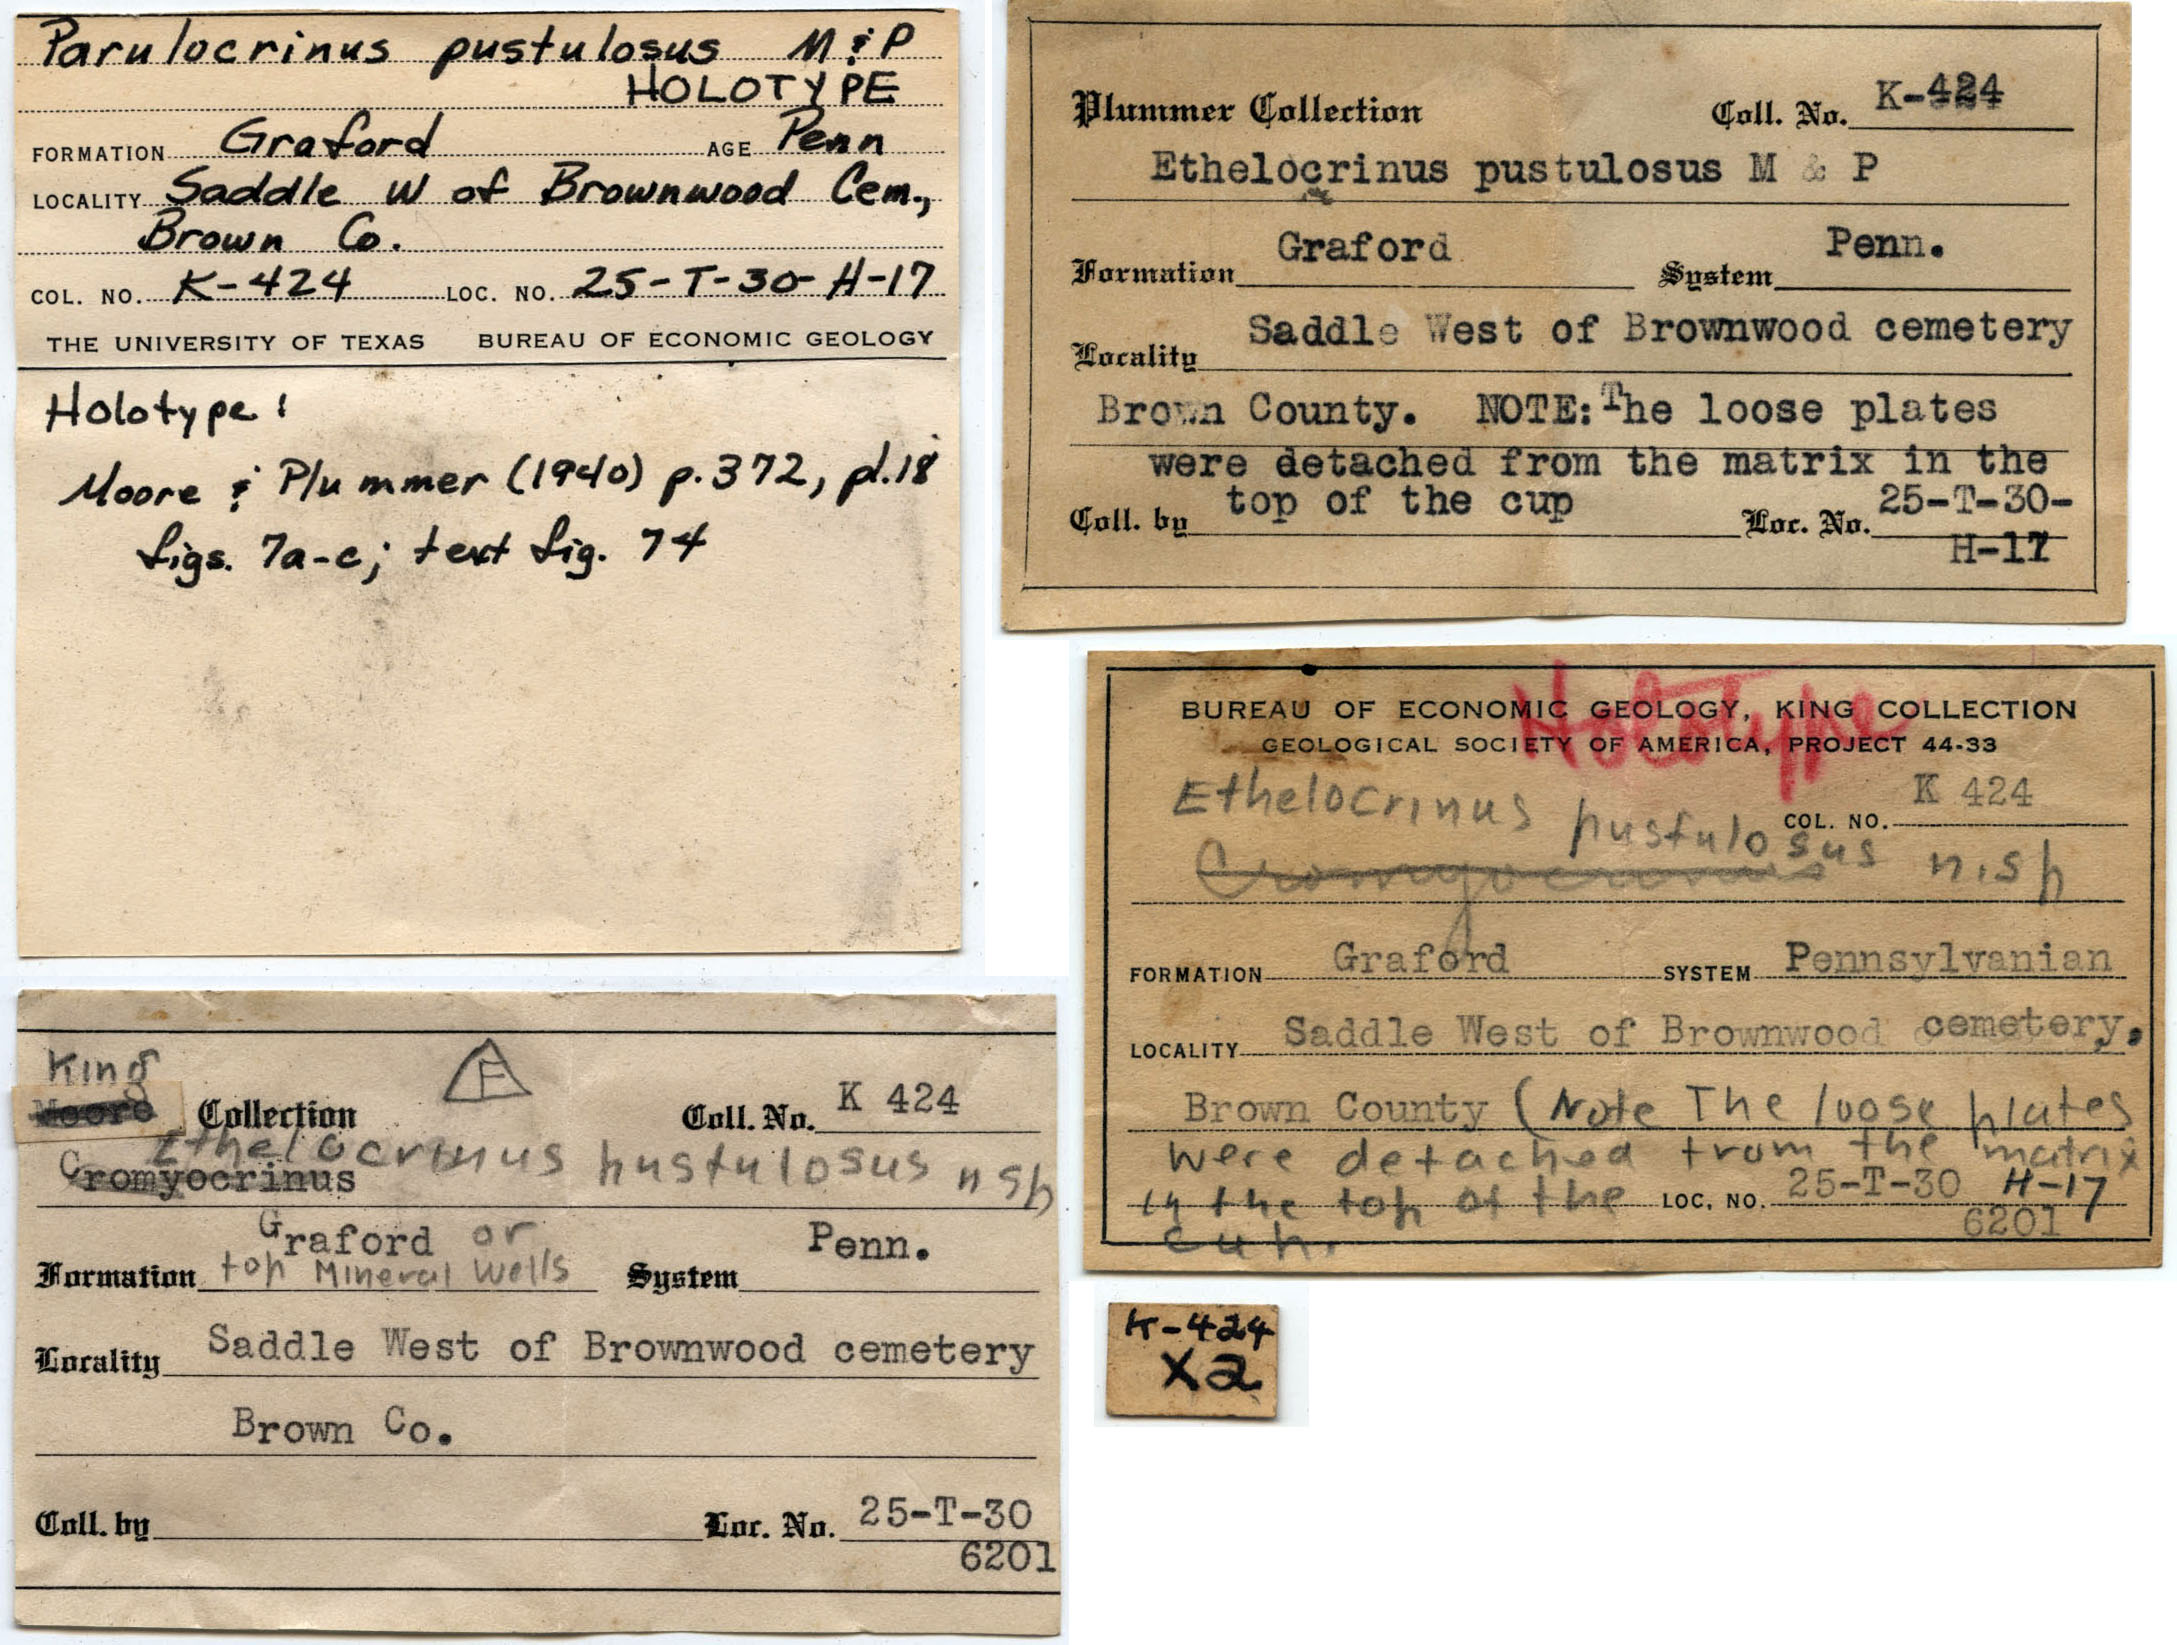 Parulocrinus pustulosus M & P
HOLOTYPE
FORMATION Graford AGE Penn
LOCALITY Saddle W of Brownwood Cem.,
Brown Co.
COL. NO. K-424 LOC. NO. 25-T-30-H-17
THE UNIVERSITY OF TEXAS BUREAU OF ECONOMIC GEOLOGY
Holotype:
Moore & Plummer (1940) p.372, pl.18
figs. 7a-c; text fig. 74
Plummer Collection Coll. No. K-424
Ethelocrinus pustulosus M & P
Formation Graford System Penn.
Locality Saddle West of Brownwood cemetery
Brown County. NOTE: The loose plates
were detached from the matrix in the
top of the cup
Coll. by Loc. No. 25-T-30-
H-17
Holotype
BUREAU OF ECONOMIC GEOLOGY, KING COLLECTION
GEOLOGICAL SOCIETY OF AMERICA, PROJECT 44-33
COL. NO. K 424
Ethelocrinus pustulosus n.sp
Cromyocrinus
FORMATION Graford SYSTEM Pennsylvanian
LOCALITY Saddle West of Brownwood cemetery.
Brown County (Note The loose plates
were detached from the matrix
in the top of the LOC. NO. 25-T-30 H-17
cup. 6201
King
Moore Collection F Coll. No. K 424
Ethelocrinus pustulosus n sp
Cromyocrinus
Graford or
Formation top Mineral Wells System Penn.
Locality Saddle West of Brownwood cemetery
Brown Co.
Coll. by Loc. No. 25-T-30
6201
K-424
X2